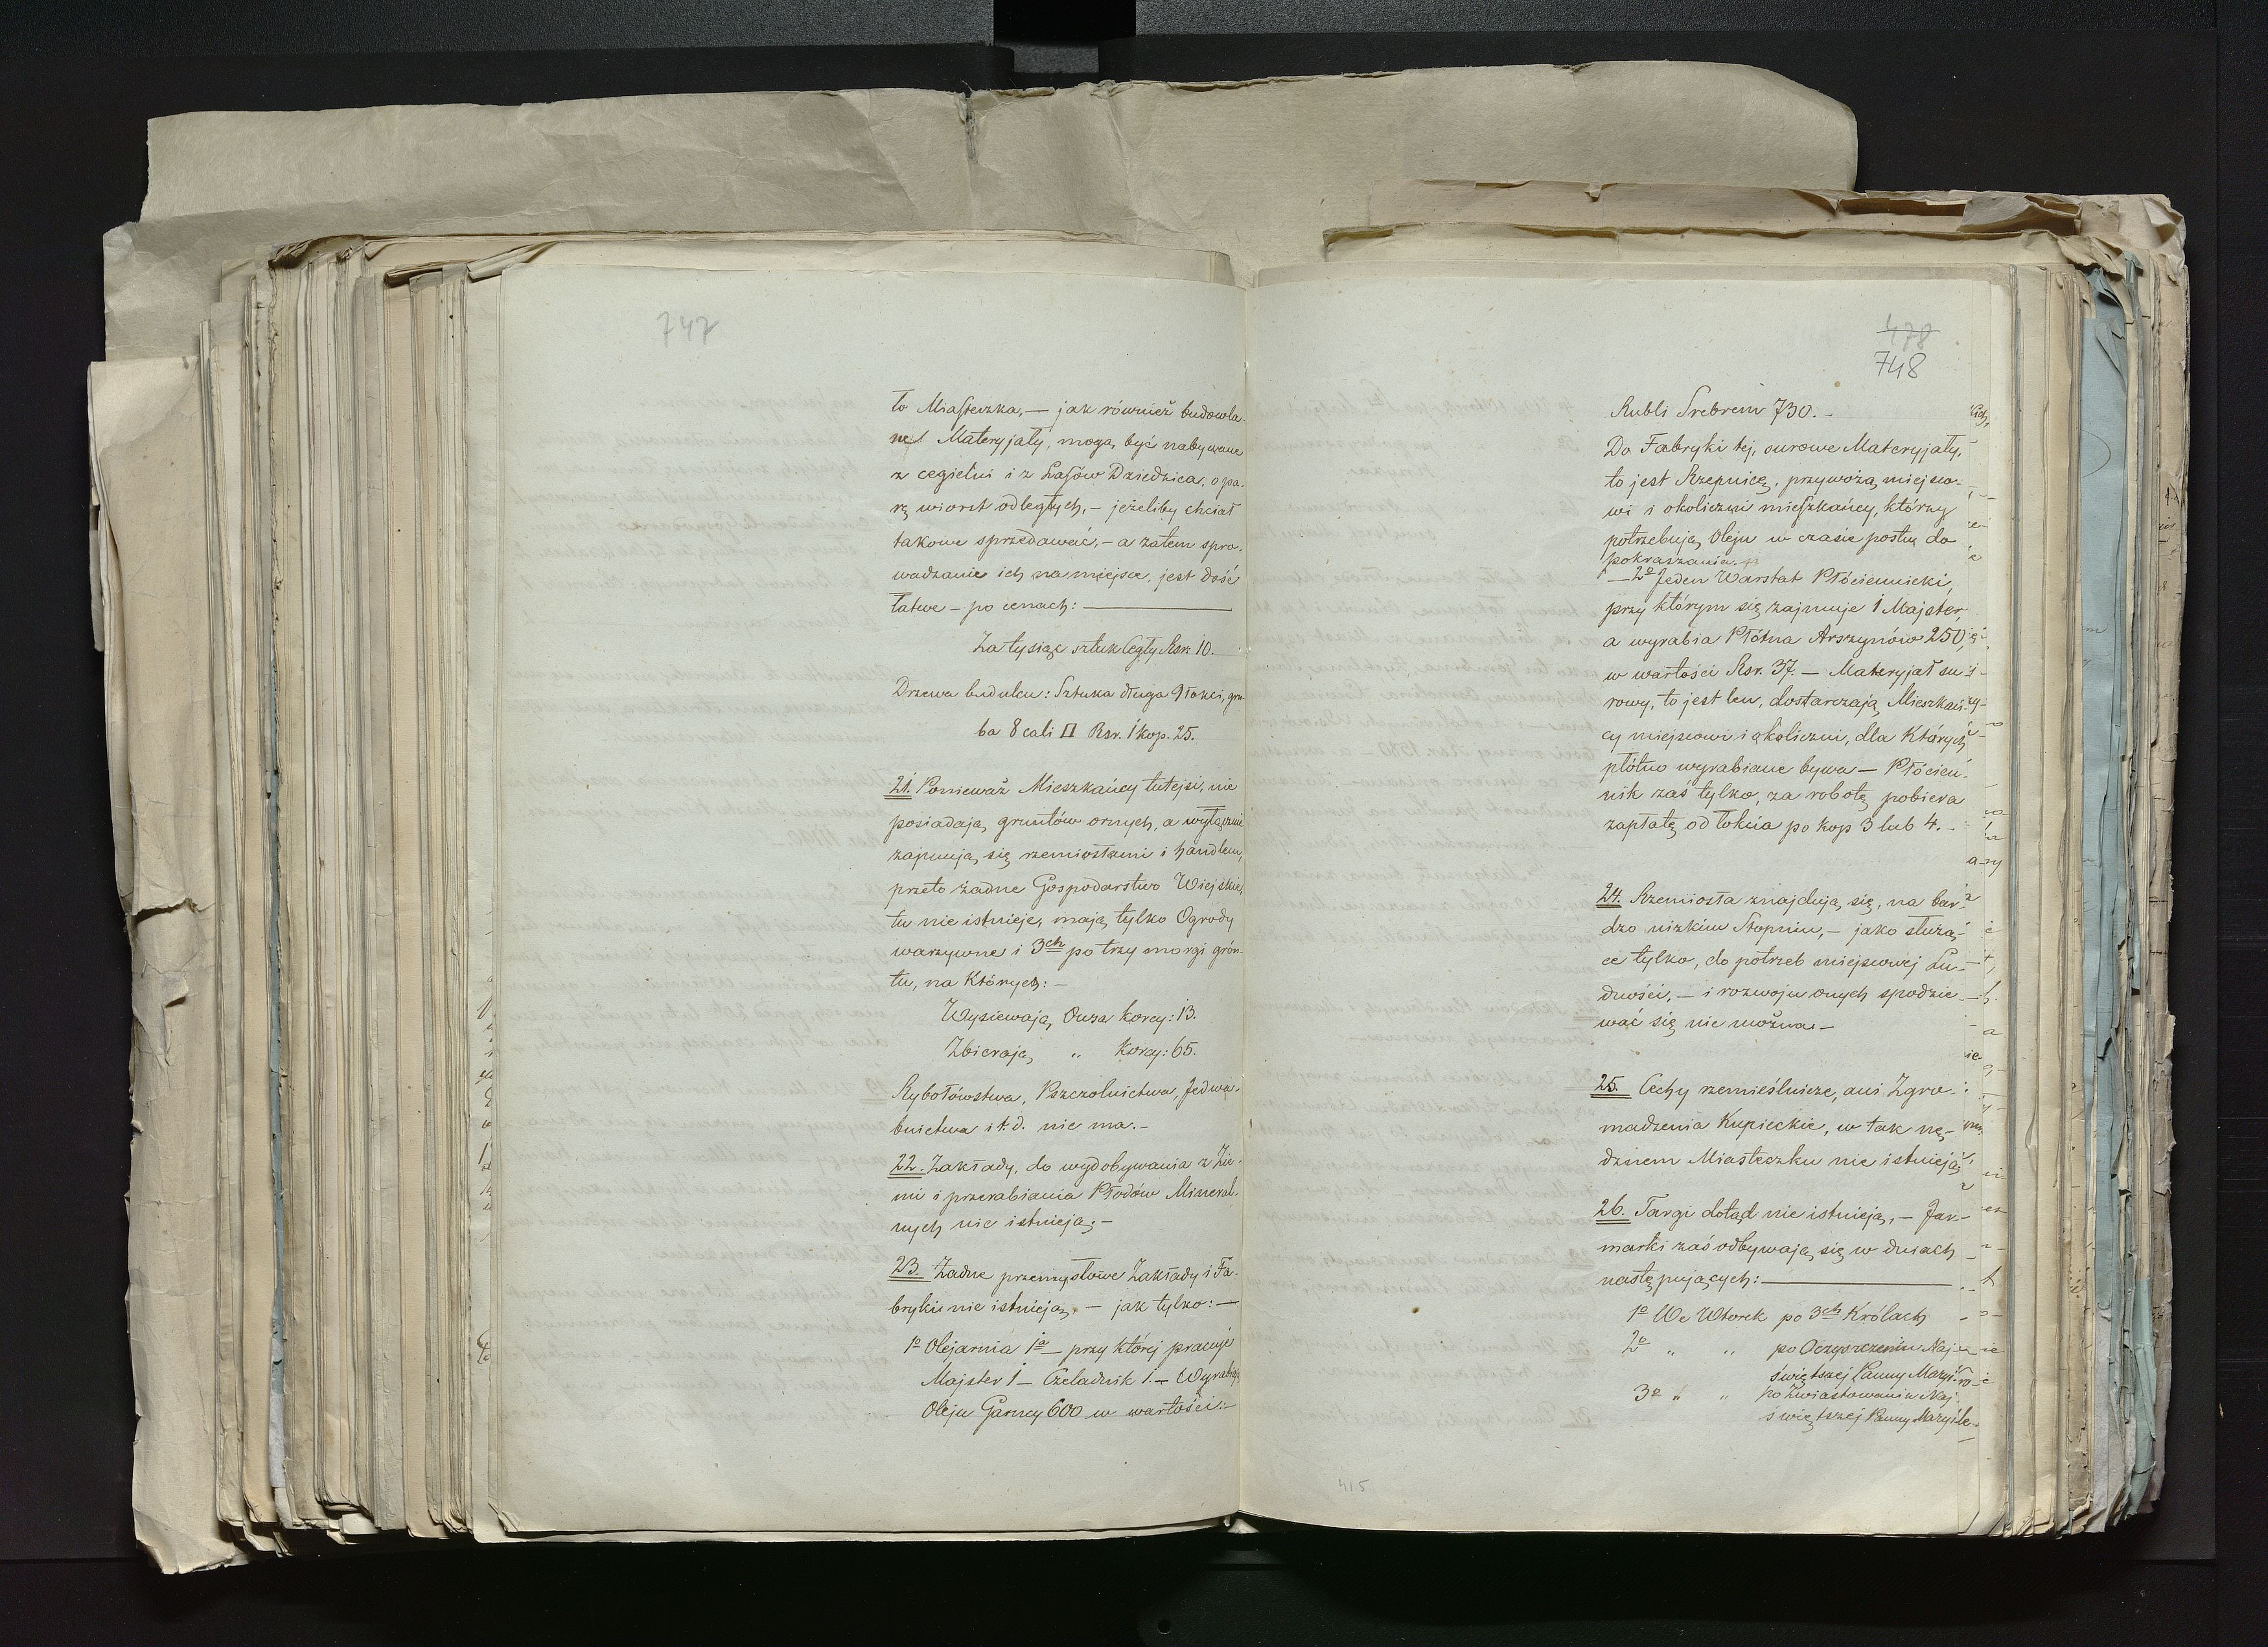 747
to Miasteczka, — jak również budowla-
ne Materyjały, mogą być nabywane
z cegielni i z Lasów Dziedzica, o pa-
rę wiorst odległych, — jeżeliby chciał
takowe sprzedawać, — a zatem spro-
wadzanie ich na miejsce, jest dość
łatwe — po cenach: —
Za tysiąc sztuk Cegły Rsr. 10.
Drzewa budulcu: Sztuka długa 9 łokci, gru-
ba 8 cali □ Rsr. 1 kop. 25.
21. Ponieważ Mieszkańcy tutejsi, nie
posiadają gruntów ornych, a wyłącznie
zajmują się rzemiosłami i handlem,
przeto żadne Gospodarstwo Wiejskie,
tu nie istnieje, mają tylko Ogrody
warzywne i 3ch po trzy morgi grón-
tu, na Których: —
Wysiewają Owsa korcy: 13.
Zbierają „ Korcy: 65.
Rybołówstwa, Pszczolnictwa, Jedwa-
bnictwa i t. d. nie ma. —
22. Zakłady, do wydobywania z Zie-
mi i przerabiania Płodów Mineral-
nych nie istnieją. —
23. Żadne przemysłowe Zakłady i Fa-
bryki nie istnieją, — jak tylko: —
1o Olejarnia 1a — przy której pracuje
Majster 1 — Czeladnik 1. — Wyrabia
Oleju Garncy 600 w wartości: —
478
748
Rubli Srebrem 730. —
Do Fabryki tej, surowe Materyjały,
to jest Rzepnicę, przywożą miejsco-
wi i okoliczni mieszkańcy, którzy
potrzebują Oleju w czasie postu do
pokraszania.
— 2o Jeden Warstat Płóciennicki,
przy którym się zajmuje 1 Majster,
a wyrabia Płótna Arszynów 250,
w wartości Rsr. 37. — Materyjał su-
rowy, to jest len, dostarczają Mieszkań-
cy miejscowi i okoliczni, dla Których
płótno wyrabiane bywa — Płócien-
nik zaś tylko, za robotę pobiera
zapłatę od łokcia po kop 3 lub 4. —
24. Rzemiosła znajdują się, na bar-
dzo nizkim Stopniu, — jako służą-
ce tylko, do potrzeb miejscowej Lu-
dności, — i rozwoju onych spodzie-
wać się nie można —
25. Cechy rzemieślnicze, ani Zgro-
madzenia Kupieckie, w tak nę-
dznem Miasteczku nie istnieją
26. Targi dotąd nie istnieją, — Jar-
marki zaś odbywają się w dniach
następujących: —
1o We Wtorek po 3ch Królach
2o „ „ po Oczyszczeniu Naj-
świętszej Panny Maryi
3o „ „ po Zwiastowaniu Naj-
świętszej Panny Maryi
415